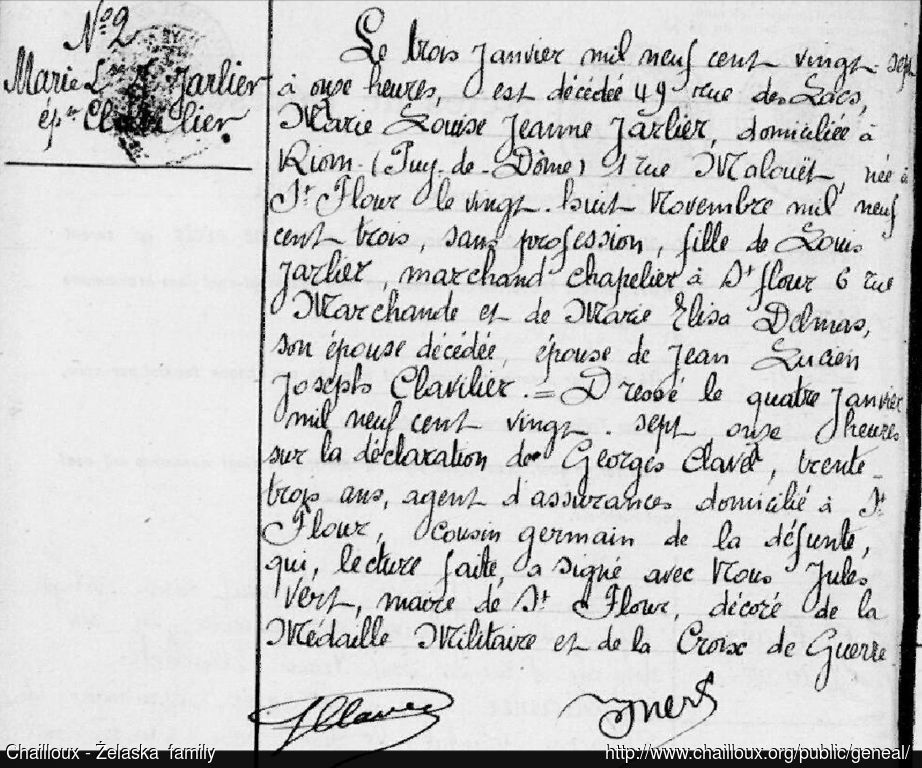 N° 2
Marie L. J. Jarlier
ép. Clavilier
Le trois Janvier mil neuf cent vingt-sept
à onze heures, est décédée 49 rue des Lacs,
Marie Louise Jeanne Jarlier, domiciliée à
Riom (Puy-de-Dôme) 1 rue Malouët, née à
St Flour le vingt-huit Novembre mil neuf
cent trois, sans profession, fille de Louis
Jarlier, marchand chapelier à St flour 6 rue
Marchande et de Marie Elisa Delmas,
son épouse décédée, épouse de Jean Lucien
Joseph Clavilier. = Dressé le quatre Janvier
mil neuf cent vingt-sept onze heures
sur la déclaration de Georges Clavel, trente-
trois ans, agent d'assurances domicilié à St
Flour, cousin germain de la défunte,
qui, lecture faite, a signé avec Nous Jules
Vert, maire de St Flour, décoré de la
Médaille Militaire et de la Croix de Guerre
GClavel
JVert
Chailloux - Żelaska family
http://www.chailloux.org/public/geneal/